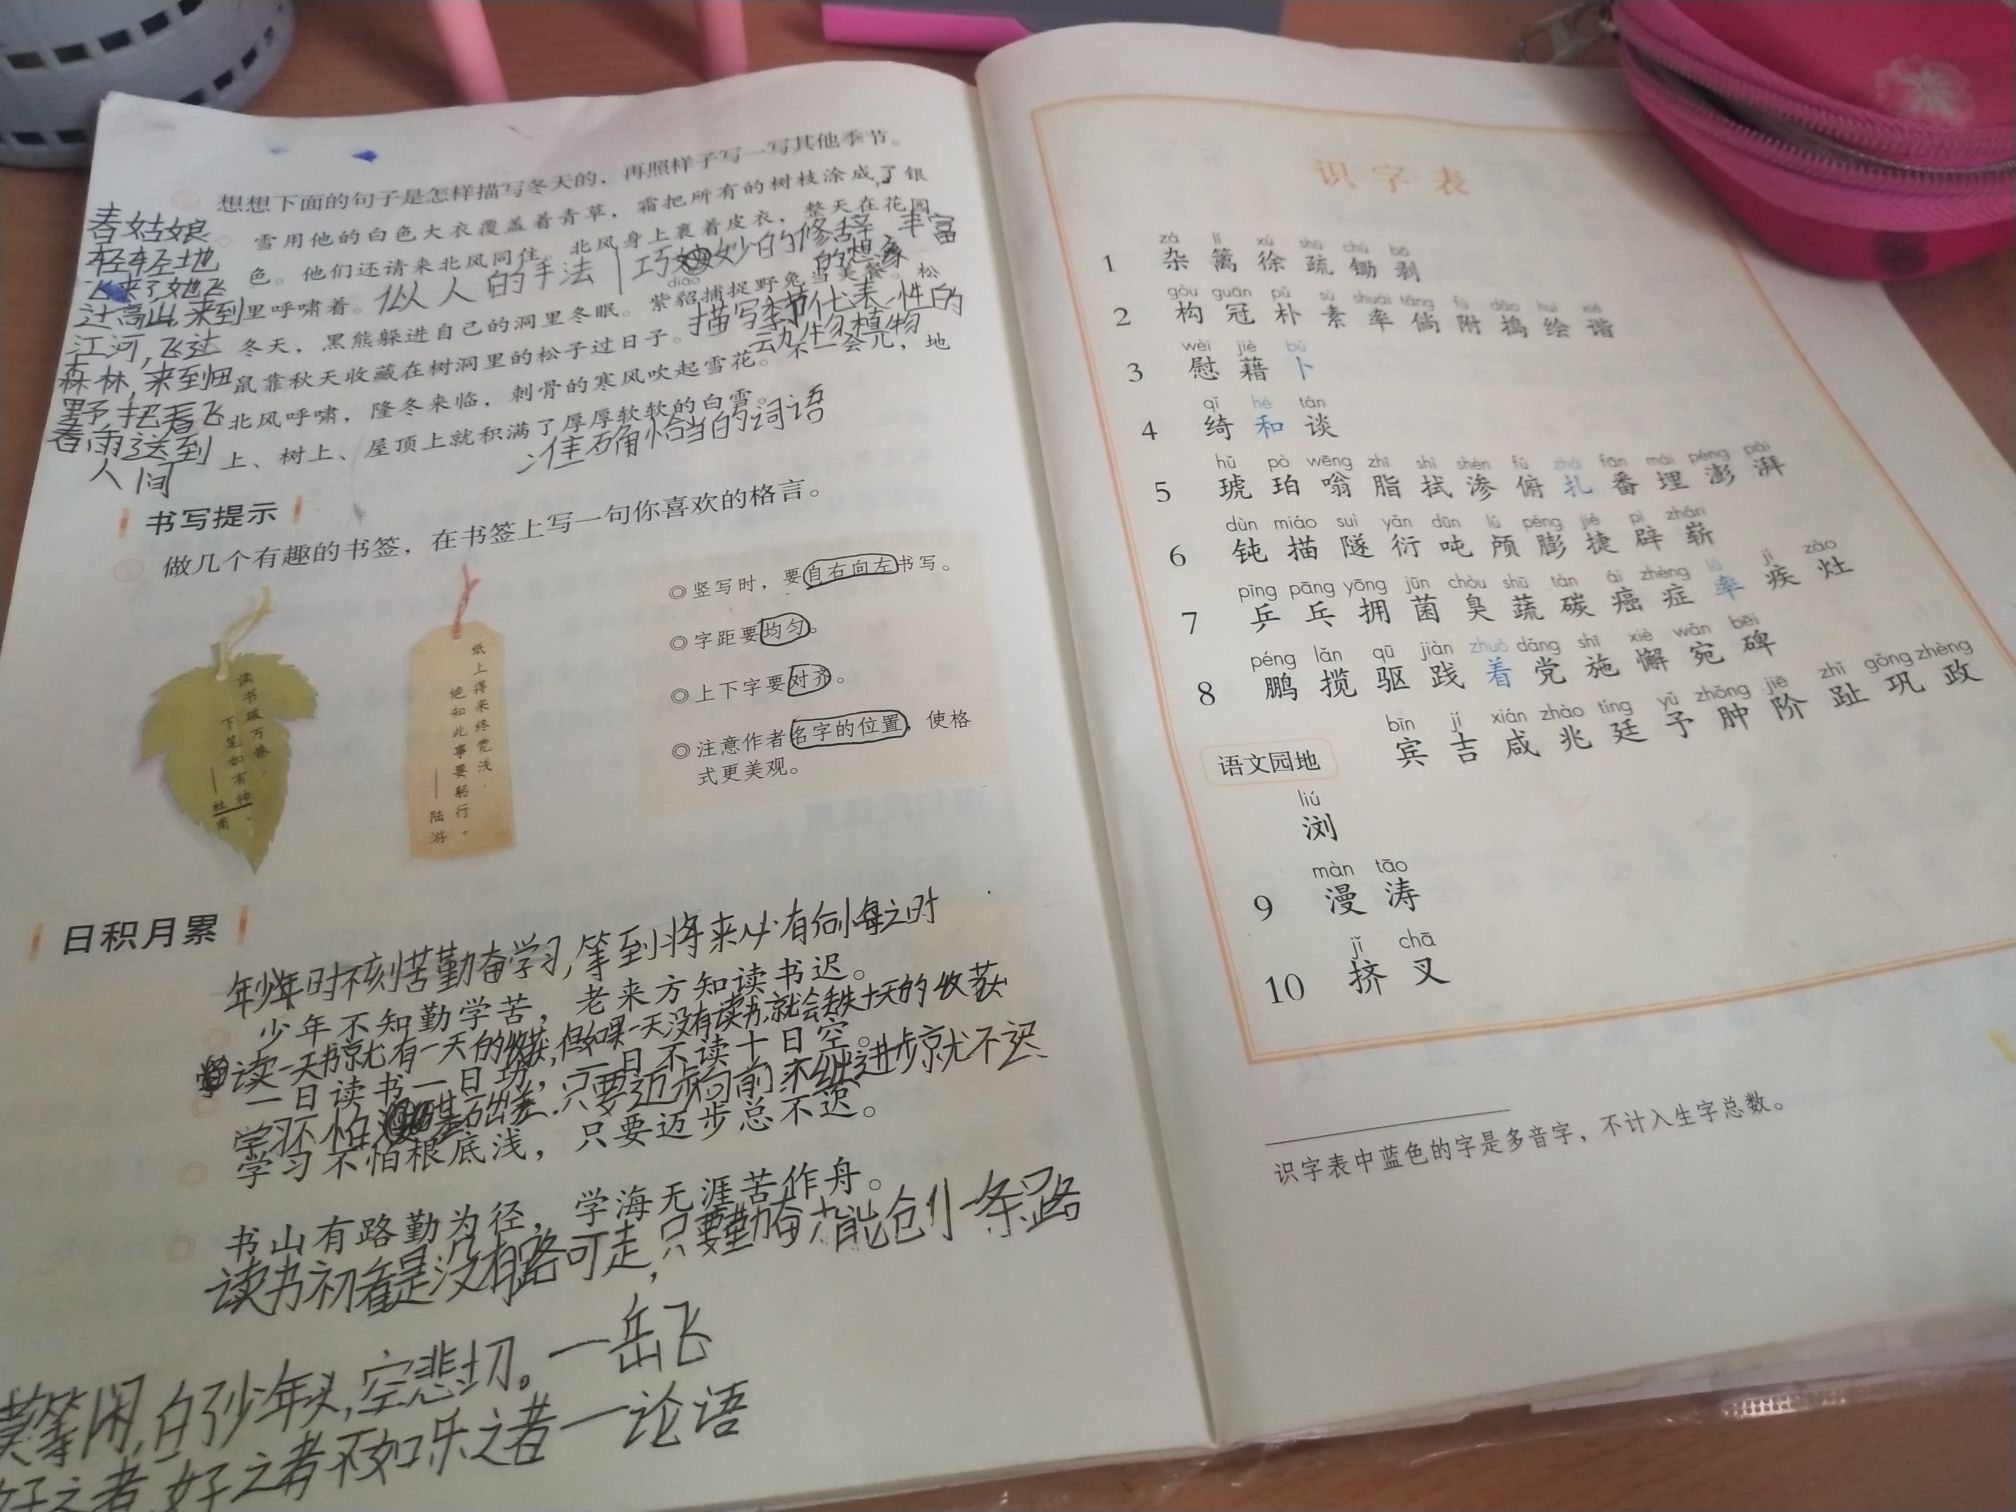 想想下面的句子是怎样描写冬天的，再照样子写一写其他季节。
雪用他的白色大衣覆盖着青草，霜把所有的树枝涂成了银
色。他们还请来北风同住。北风身上裹着皮衣，整天在花园
里呼啸着。
冬天，黑熊躲进自己的洞里冬眠。紫貂捕捉野兔当美餐。松
diāo
鼠靠秋天收藏在树洞里的松子过日子。
北风呼啸，隆冬来临，刺骨的寒风吹起雪花。不一会儿，地
上、树上、屋顶上就积满了厚厚软软的白雪。
春姑娘
轻轻地
飞来了她飞
过高山,来到
江河,飞过
森林,来到田
野把春飞
春雨送到
人间
似人的手法
巧妙的修辞
丰富
的想象
描写季节代表性的
动物植物
准确恰当的词语
书写提示
做几个有趣的书签，在书签上写一句你喜欢的格言。
读书破万卷，
下笔如有神。
——杜甫
纸上得来终觉浅，
绝知此事要躬行。
——陆游
◎竖写时，要自右向左书写。
◎字距要均匀。
◎上下字要对齐。
◎注意作者名字的位置，使格
式更美观。
日积月累
年少年时不刻苦勤奋学习,等到将来必有后悔之时
少年不知勤学苦，老来方知读书迟。
读一天书就有一天的收获,但如果一天没有读书,就会丢失十天的收获
一日读书一日功，一日不读十日空。
学习不怕基础差.只要迈步向前不继进步就不迟
学习不怕根底浅，只要迈步总不迟。
书山有路勤为径，学海无涯苦作舟。
读书初看是没有路可走,只要勤奋才能创一条路
莫等闲,白了少年头,空悲切。一岳飞
好之者,好之者不如乐之者一论语
识字表
zá lí xú shū chú bō
1 杂 篱 徐 疏 锄 剥
gòu guān pǔ sù shuài tǎng fù dǎo huì xié
2 构 冠 朴 素 率 倘 附 捣 绘 谐
wèi jiè bǔ
3 慰 藉 卜
qǐ hè tán
4 绮 和 谈
hǔ pò wēng zhī shì shèn fǔ zhá fān mái péng pài
5 琥 珀 嗡 脂 拭 渗 俯 扎 番 埋 澎 湃
dùn miáo suì yǎn dūn lú péng jié pì zhǎn
6 钝 描 隧 衍 吨 颅 膨 捷 辟 崭
pīng pāng yōng jūn chòu shū tàn ái zhèng lǜ jí zào
7 乒 乓 拥 菌 臭 蔬 碳 癌 症 率 疾 灶
péng lǎn qū jiàn zhuó dǎng shī xiè wǎn bēi
8 鹏 揽 驱 践 着 党 施 懈 宛 碑
bīn jí xián zhào tíng yǔ zhǒng jiē zhǐ gǒng zhèng
宾 吉 咸 兆 廷 予 肿 阶 趾 巩 政
语文园地
liú
浏
màn tāo
9 漫 涛
jǐ chā
10 挤 叉
识字表中蓝色的字是多音字，不计入生字总数。